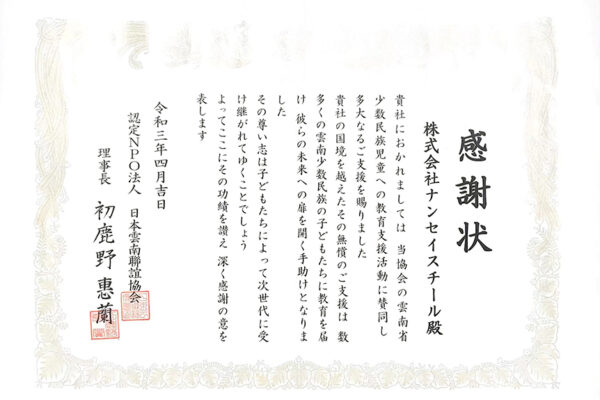 感謝状
株式会社ナンセイスチール殿
貴社におかれましては 当協会の雲南省
少数民族児童への教育支援活動に賛同し
多大なるご支援を賜りました
貴社の国境を越えたその無償のご支援は 数
多くの雲南少数民族の子どもたちに教育を届
け 彼らの未来への扉を開く手助けとなりま
した
その尊い志は子どもたちによって次世代に受
け継がれてゆくことでしょう
よってここにその功績を讃え 深く感謝の意を
表します
令和三年四月吉日
認定NPO法人 日本雲南聯誼協会
理事長 初鹿野惠蘭